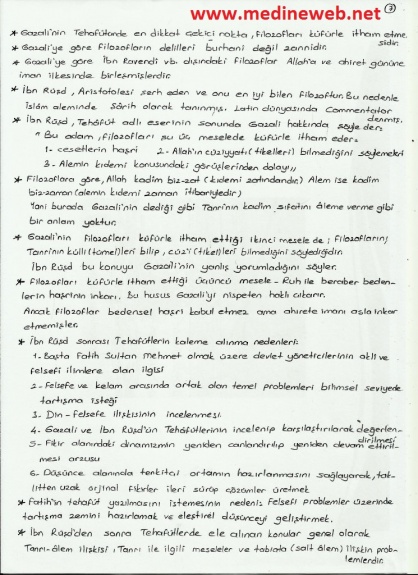 www.medineweb.net
3
* Gazali'nin Tehafütünde en dikkat çekici nokta, filozofları küfürle itham etme
sidir.
* Gazali'ye göre filozofların delilleri burhani değil zannidir.
* Gazali'ye göre İbn Ravendi vb. dışındaki filozoflar Allah'a ve ahiret gününe
iman ilkesinde birleşmişlerdir.
* İbn Rüşd, Aristotolesi şerh eden ve onu en iyi bilen filozoftur. Bu nedenle
İslâm aleminde Şârih olarak tanınmış. Latin dünyasında Commentator
denmiş.
* İbn Rüşd, Tehâfüt adlı eserinin sonunda Gazali hakkında şöyle der:
"Bu adam, filozofları şu üç meselede küfürle itham eder:
1- cesetlerin haşri 2- Allah'ın cüziyyatı (tikelleri) bilmediğini söylemeleri
3- Alemin kıdemi konusundaki görüşlerinden dolayı,,
* Filozoflara göre, Allah kadim biz-zat (kıdemi zatındandır.) Alem ise kadim
biz-zaman (alemin kıdemi zaman itibariyledir)
Yani burada Gazali'nin dediği gibi Tanrının kadim sıfatını âleme verme gibi
bir anlam yoktur.
* Gazali'nin filozofları küfürle itham ettiği ikinci mesele de; filozofların;
Tanrının külli (tümel)leri bilip, cüz'i (tikel)leri bilmediğini söylediğidir
İbn Rüşd bu konuyu Gazali'nin yanlış yorumladığını söyler.
* Filozofları küfürle itham ettiği üçüncü mesele - Ruh ile beraber beden-
lerin haşrinin inkarı. Bu husus Gazali'yi nispeten haklı çıkarır.
Ancak filozoflar bedensel haşri kabul etmez ama ahirete imanı asla inkar
etmemişler.
* İbn Rüşd sonrası Tehafütlerin kaleme alınma nedenleri:
1- Başta Fatih Sultan Mehmet olmak üzere devlet yöneticilerinin akli ve
felsefi ilimlere olan ilgisi
2- Felsefe ve kelam arasında ortak olan temel problemleri bilimsel seviyede
tartışma isteği
3. Din-Felsefe ilişkisinin incelenmesi
4. Gazali ve İbn Rüşd'ün Tehâfütlerinin incelenip karşılaştırılarak değerlen-
dirilmesi
5- Fikir alanındaki dinamizmin yeniden canlandırılıp yeniden devam ettiril-
mesi arzusu
6- Düşünce alanında tenkitçi ortamın hazırlanmasını sağlayarak, tak-
litten uzak orjinal fikirler ileri sürüp çözümler üretmek
* Fatih'in tehafüt yazılmasını istemesinin nedeni: Felsefi problemler üzerinde
tartışma zemini hazırlamak ve eleştirel düşünceyi geliştirmek.
* İbn Rüşd'den sonra Tehafütlerde ele alınan konular genel olarak
Tanrı-âlem ilişkisi, Tanrı ile ilgili meseleler ve tabiata (salt âlem) ilişkin prob-
lemlerdir.